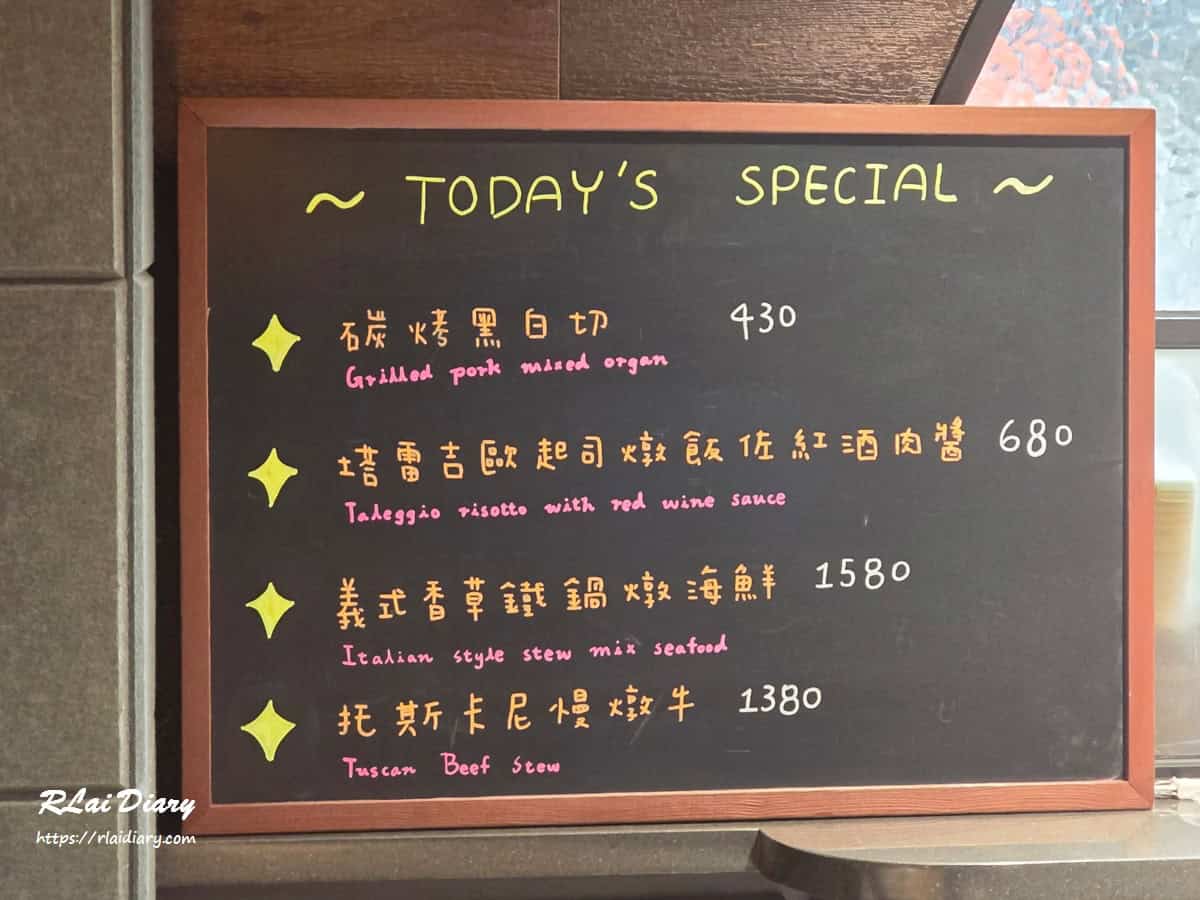 ~ TODAY'S SPECIAL ~
碳烤黑白切 430
Grilled pork mixed organ
塔雷吉歐起司燉飯佐紅酒肉醬 680
Taleggio risotto with red wine sauce
義式香草鐵鍋燉海鮮 1580
Italian style stew mix seafood
托斯卡尼慢燉牛 1380
Tuscan Beef Stew
RLai Diary
https://rlaidiary.com